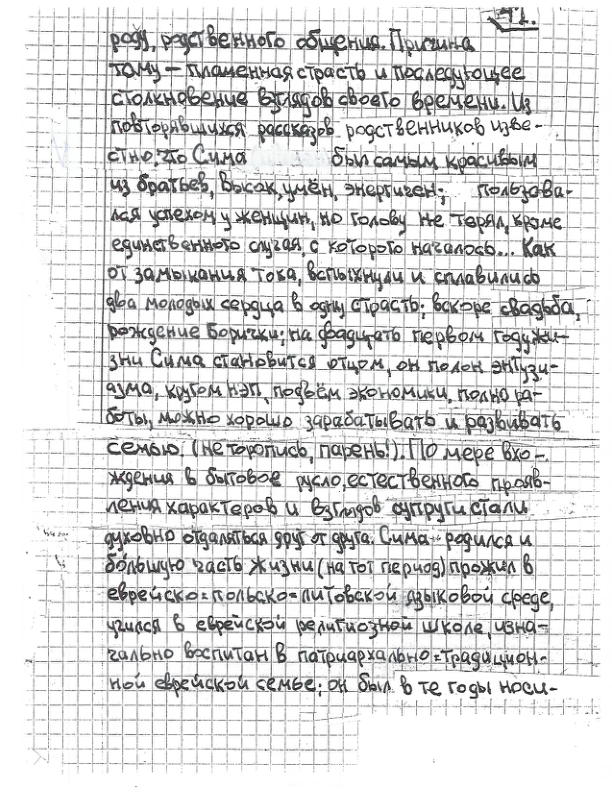 92.
роду, родственного общения. Причина
тому — пламенная страсть и последующее
столкновение взглядов своего времени. Из
повторявшихся рассказов родственников изве-
стно, что Сима был самым красивым
из братьев, высок, умён, энергичен; пользова-
лся успехом у женщин, но голову не терял, кроме
единственного случая, с которого началось... Как
от замыкания тока, вспыхнули и сплавились
два молодых сердца в одну страсть; вскоре свадьба,
рождение Борички; на двадцать первом году жи-
зни Сима становится отцом, он полон энтузи-
азма, кругом НЭП, подъём экономики, полно ра-
боты, можно хорошо зарабатывать и развивать
семью. (Не торопись, парень!). По мере вхо-
ждения в бытовое русло, естественного прояв-
ления характеров и взглядов супруги стали
духовно отдаляться друг от друга. Сима родился и
большую часть жизни (на тот период) прожил в
еврейско=польско=литовской языковой среде,
учился в еврейской религиозной школе, изна-
чально воспитан в патриархально=традицион-
ной еврейской семье; он был в те годы носи-